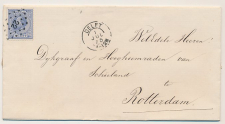 DELFT
Wel Ed.le Heeren
Dijkgraaf en Hoogheemraden van
Schieland
te
Rotterdam